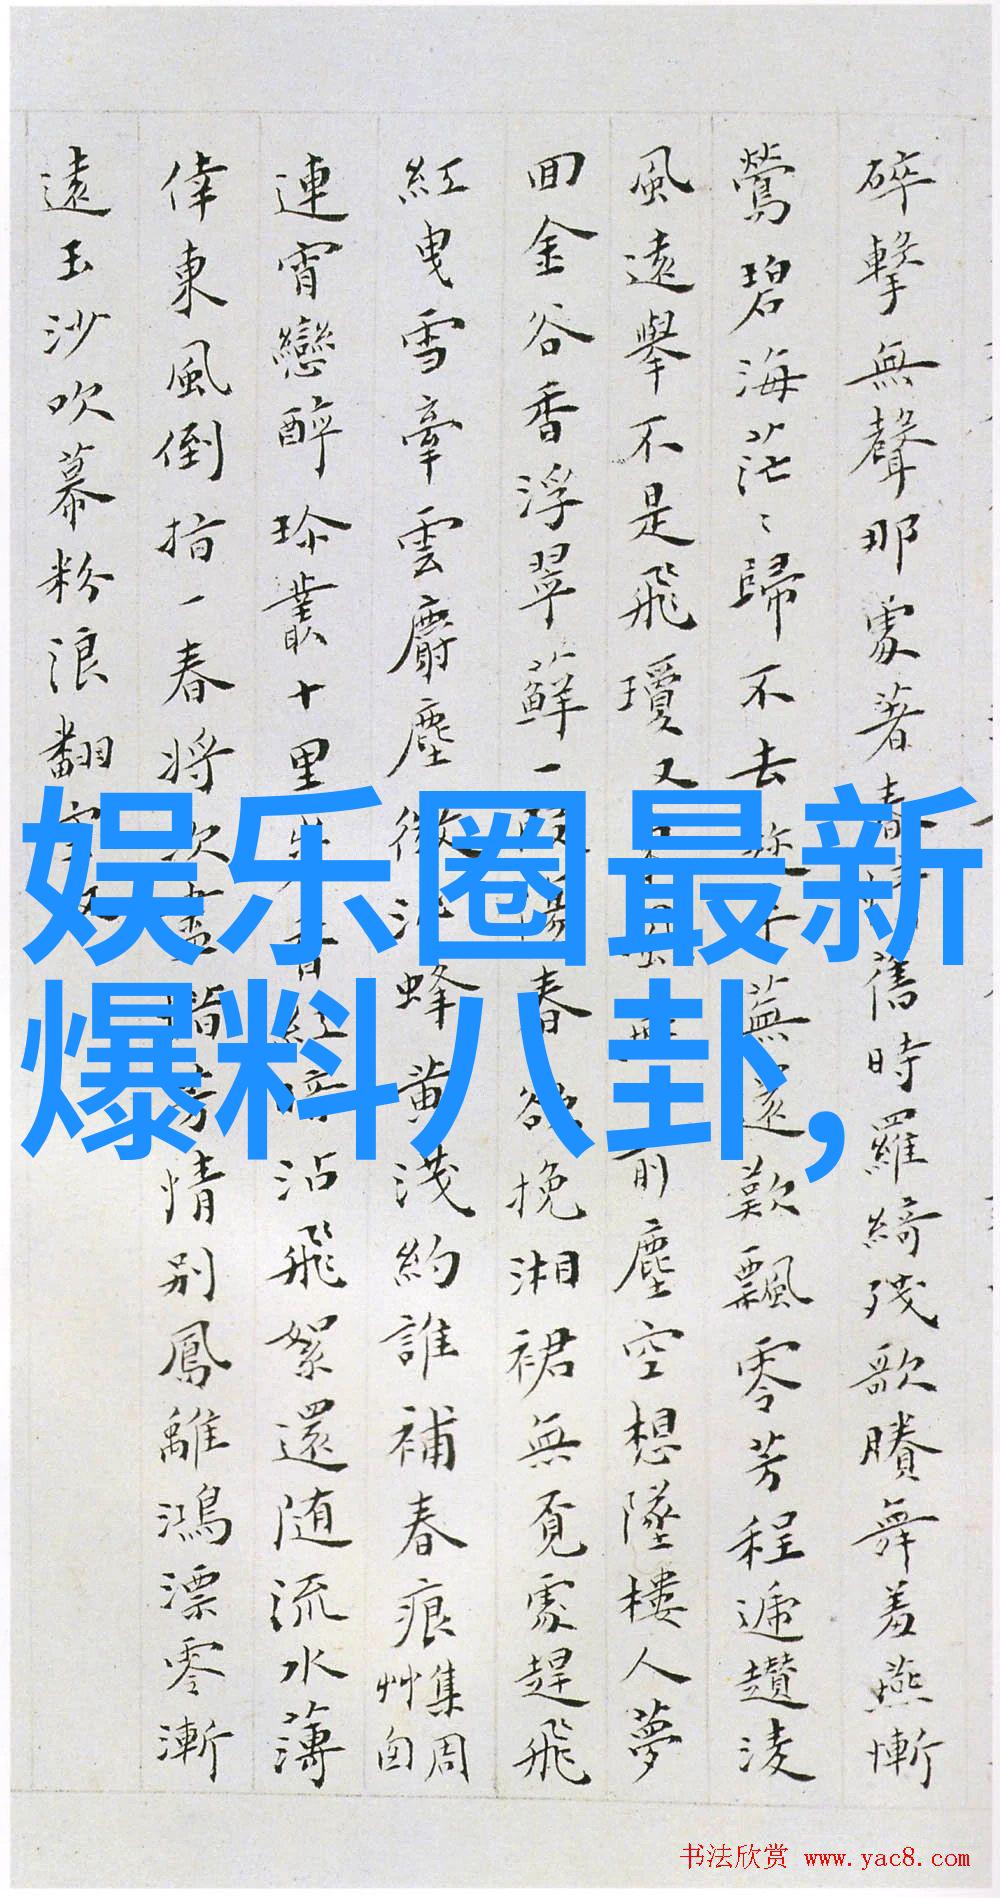 碎擊無聲那處著春
舊時羅綺殘歌賸舞羞燕慚
鶯碧海茫〻歸不去
蕪遠歎飄零芳程遞趲凌
風遠舉不是飛瓊又
前塵空想墜樓人夢
回金谷香浮翠蘚一
春欲挽湘裙無覓處趕飛
紅曳雪牽雲麝塵微
蜂黄淺約誰補春痕
集周
艸囪
連宵戀醉珍叢十里
沾飛絮還随流水薄
倖東風倒指一春将次盡
情別鳳離鴻漂零漸
遠玉沙吹幕粉浪翻空
娱乐圈最新
爆料八卦,
书法欣赏 www.yac8.com